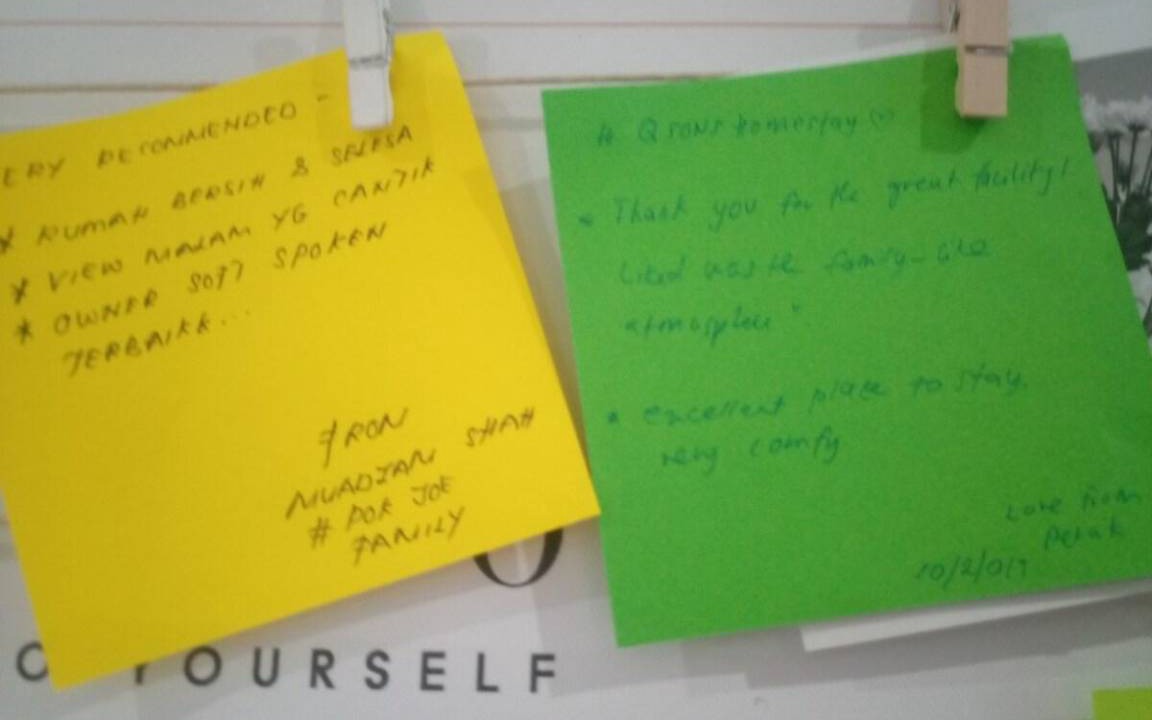 ERY RECOMMENDED -
* RUMAH BERSIH & SELESA
* VIEW MALAM YG CANTIK
* OWNER SOFT SPOKEN
TERBAIKK...
FROM
MUADZAM SHAH
# POK JOE
FAMILY
# Qsons homestay
* Thank you for the great facility!
liked was the family-like
atmosphere"
* excellent place to stay.
very comfy
Love from
Perak
O
YOURSELF